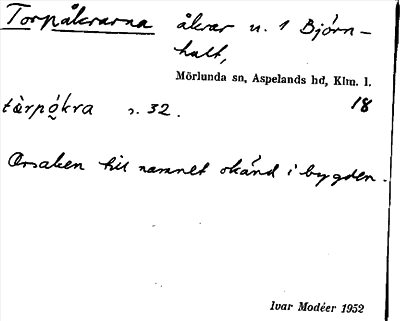 Torpåkrarna åkrar n. 1 Björn-
hult,
Mörlunda sn, Aspelands hd, Klm. l.
tàrpó̰kra s. 32. 18
Orsaken till namnet okänd i bygden.
Ivar Modéer 1952